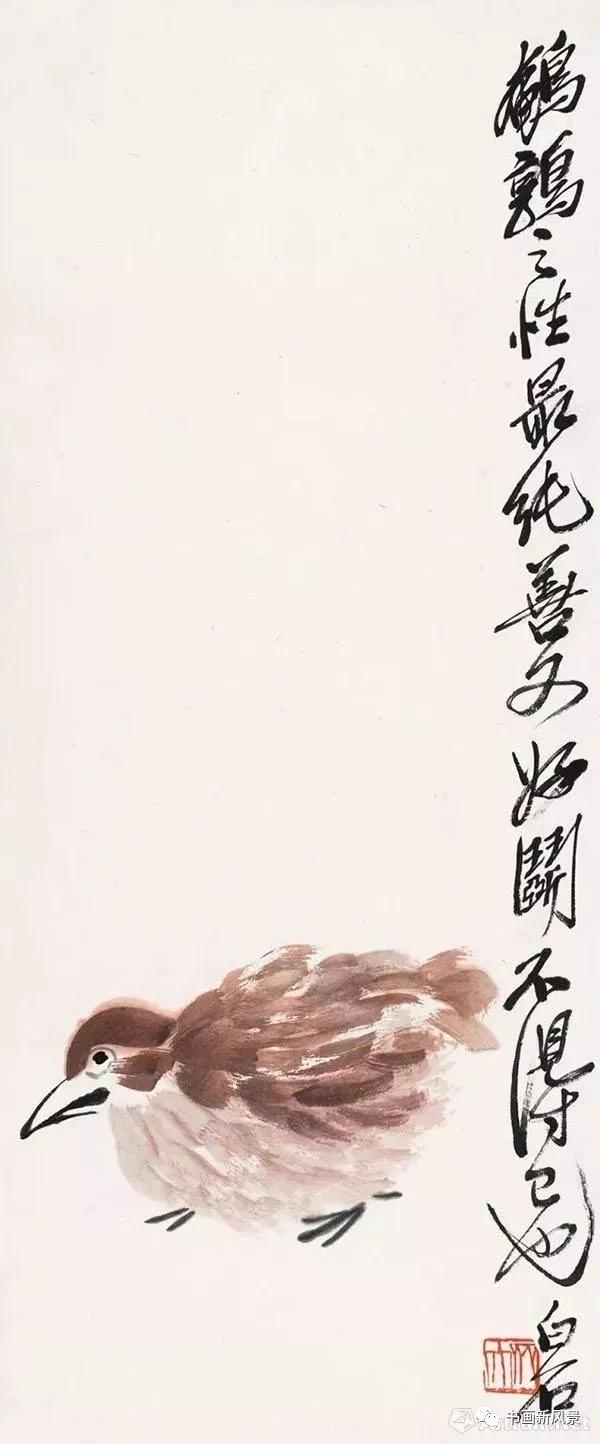 鵪鶉之性最純善又好鬥不得已也
白石
书画新风景